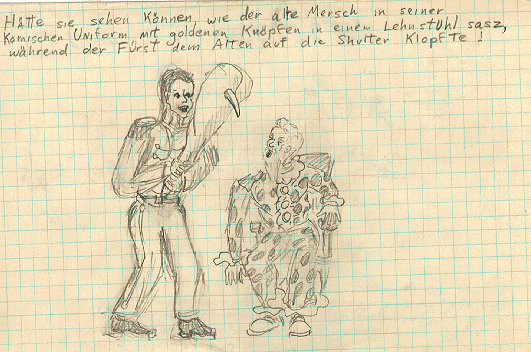 Hätte sie sehen können, wie der alte Mersch in seiner
Komischen Uniform mit goldenen Knöpfen in einem Lehnstuhl sasz,
während der Fürst dem Alten auf die Shulter Klopfte !